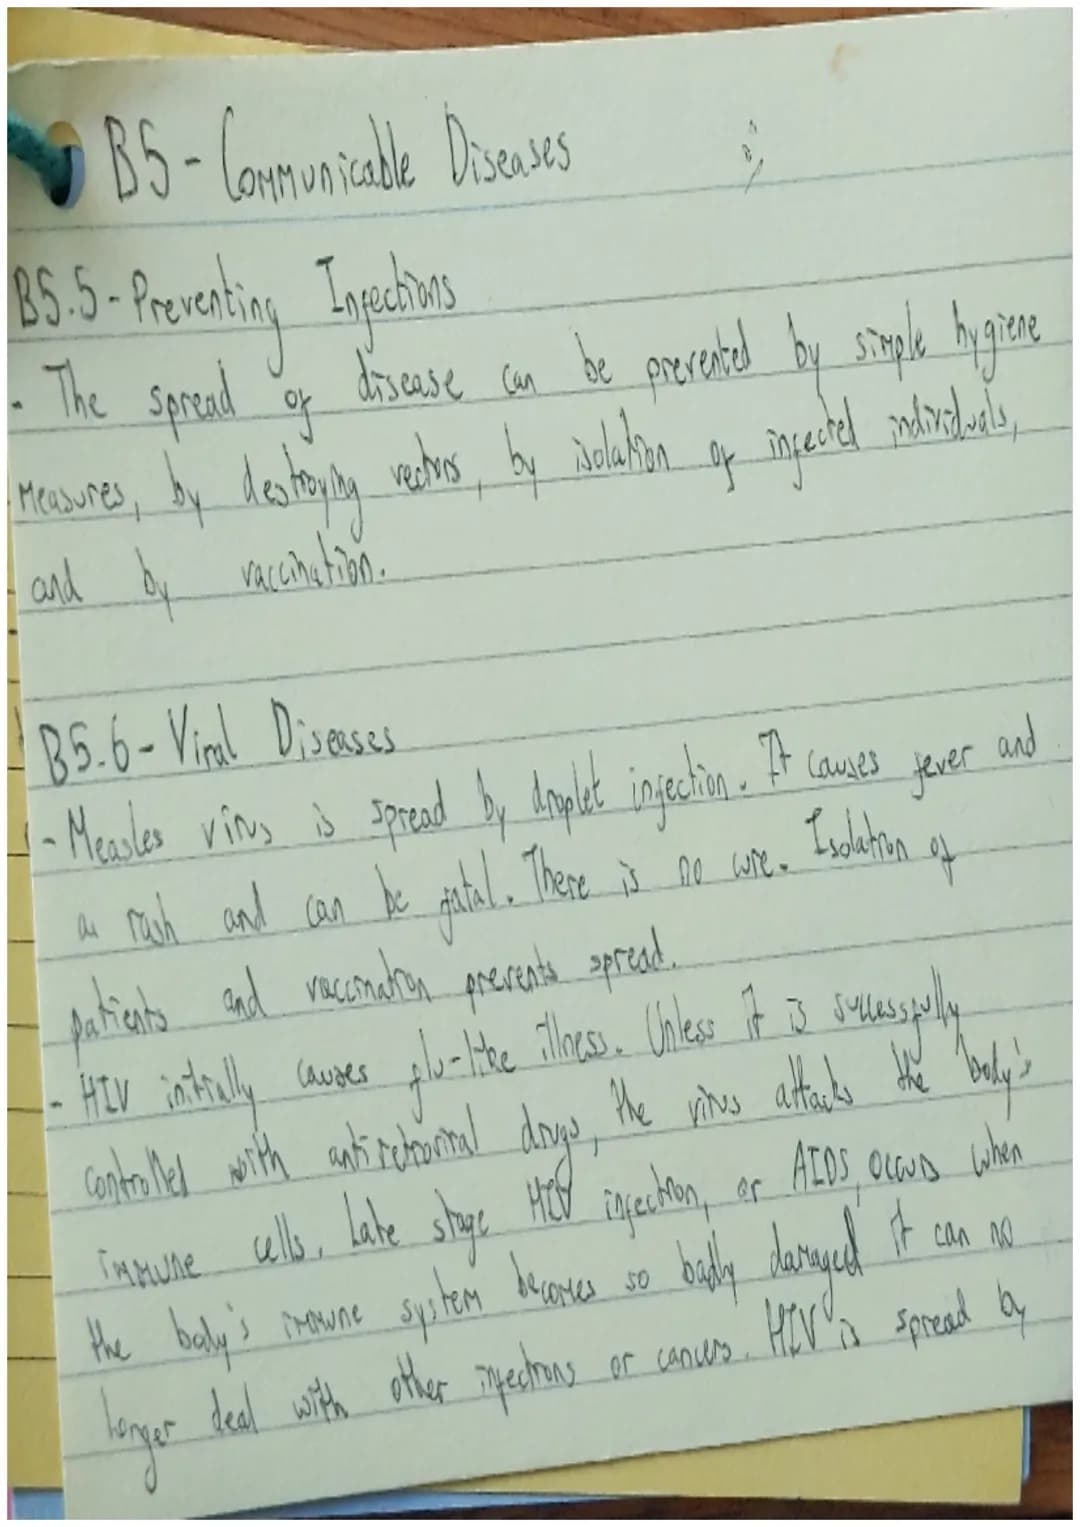 B5 - Communicable Diseases
B5.5 - Preventing Infections
- The spread of disease can be prevented by simple hygiene
measures, by destroying vectors, by isolation of infected individuals,
and by vaccination.
B5.6 - Viral Diseases
- Measles virus is spread by droplet infection. It causes fever and
a rash and can be fatal. There is no cure. Isolation of
patients and vaccination prevents spread.
- HIV initially causes flu-like illness. Unless it is successfully
controlled with antiretroviral drugs, the virus attacks the body's
immune cells. Late stage HIV infection, or AIDS, occurs when
the body's immune system becomes so badly damaged it can no
longer deal with other infections or cancers. HIV is spread by